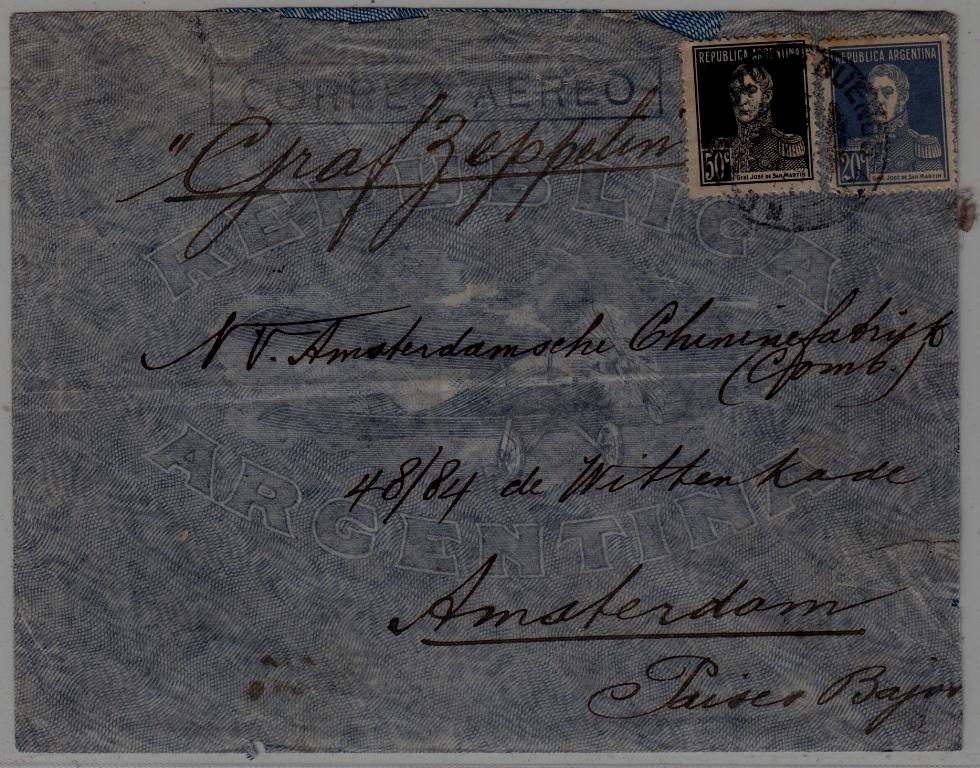 CORREO AEREO
"Graf Zeppelin
REPUBLICA ARGENTINA
50c
Gral José de San Martín
REPUBLICA ARGENTINA
20c
Gral José de San Martín
BUENO
REPUBLICA
N V. Amsterdamsche Chininefabriek
(Comb.)
48/84 de Wittenkade
ARGENTINA
Amsterdam
Paises Bajos